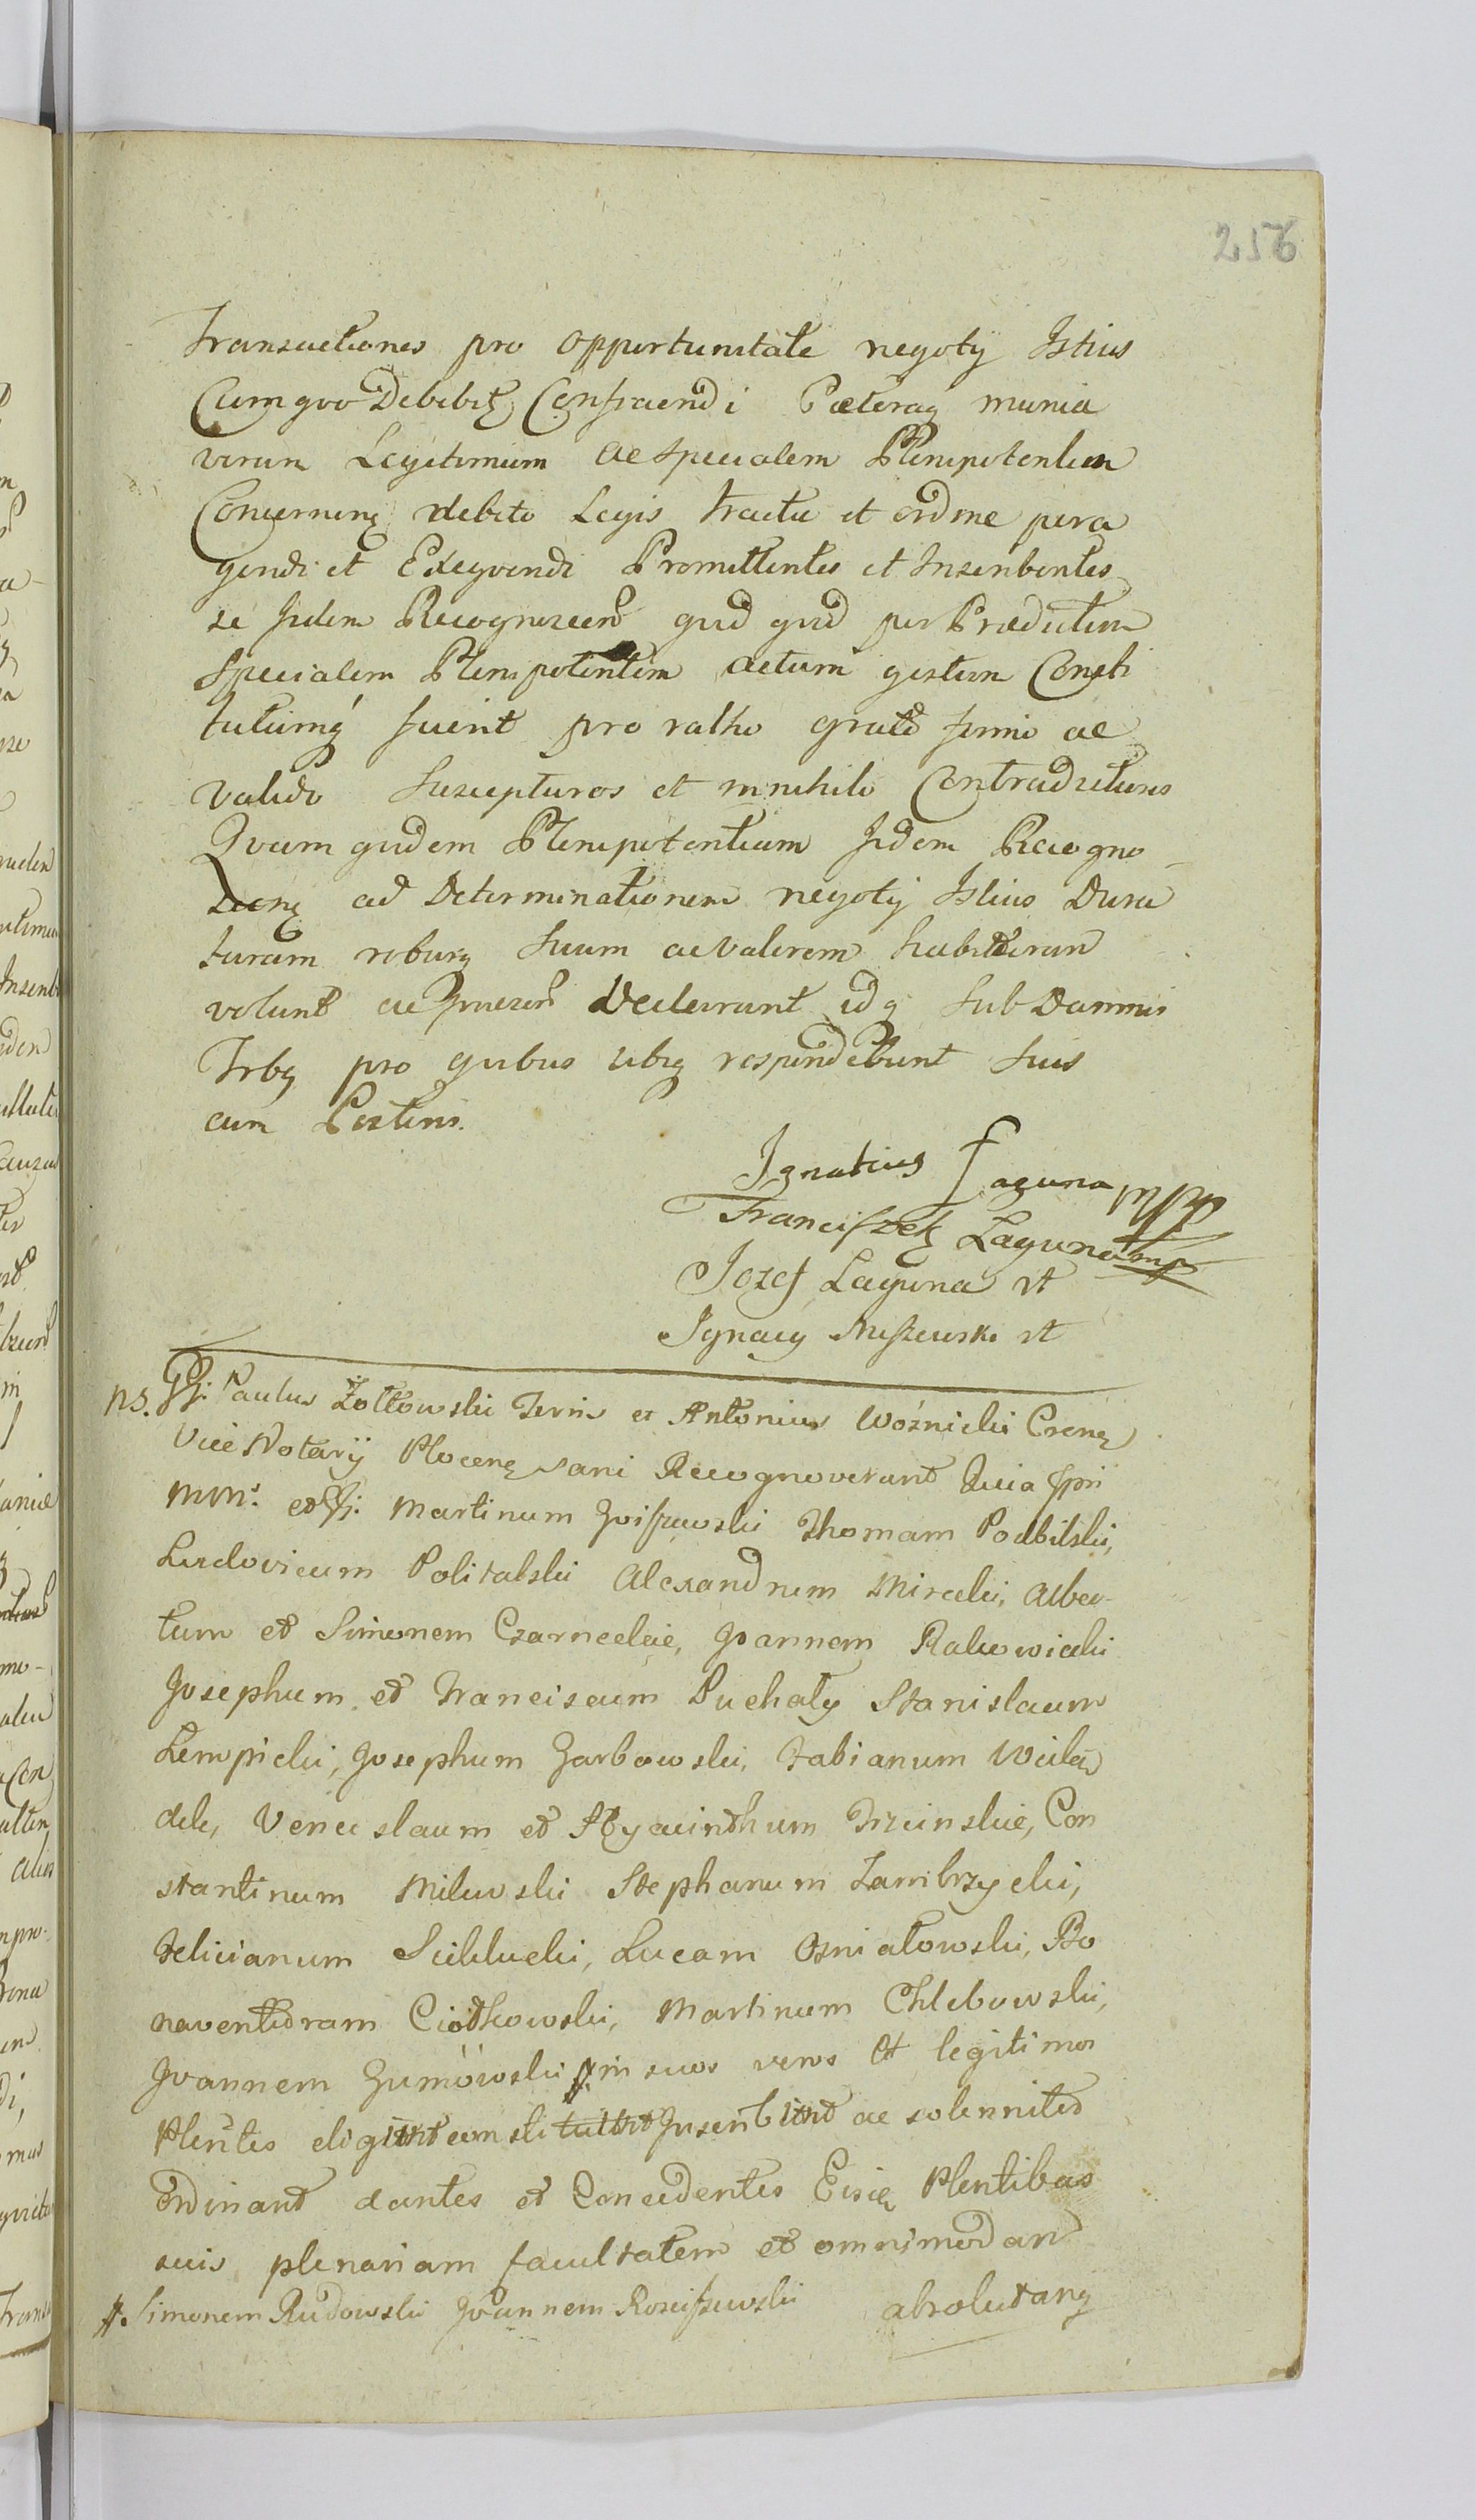 256
Transactiones pro opportunitate negotij Istius
Cumquo Debebitq Conficiendi Caeteraq munia
verum Legitimum ac specialem Plenipotentem
Concernenq debito Legis tractu et ordine pera
gendi et Exeqvendi Promittentes et Inscribentes
se Iidem Recognoscend quid quid per Praedictum
Specialem Plenipotentem actum gestum Consti
tutumq fuerit pro ratho grato firmo ac
valido Suscepturos et in nihilo Contradicturos
Qvam quidem Plenipotentiam Iidem Recogno
ad Determinationem negotij Istius Dura
turam roburq Suum ac valorem habituram
volunt ac Declarant idq Sub Damnis
Trbq pro quibus ubiq respondebunt Suis
cum Posteris.
Ignatius Laguna mpp
Franciszek Laguna mp
Jozef Laguna vt
Ignacy vt
ns. GG: Paulus Żółtowski Terris et Antonius Woźnicki Crenq
Vice Notarij Plocenq sani Recognoverunt Quia ipsi
MM: et GG: Martinum Thomam Podbilski,
Ludovicum Politalski Alexandrum Mirecki, Alber-
tum et Simonem Czarneckie, Joannem Rakowicki
Josephum et Franciscum Puchały Stanislaum
Lempicki, Josephum Garbowski, Fabianum
Venceslaum et Hyacinthum Trzcinskie, Con
stantinum Milewski Stephanum Zambrzycki,
Felicianum Lucam Osniałowski, Bo
naventuram Ciółkowski, Martinum Chlebowski,
Joannem Gumowski #in suos veros et legitimos
Plentes eligunt constituunt Inscribunt ac solennited
ordinant dantes et Concedentes Eisdq Plentibus
suis plenariam facultatem et omnimodam
#. Simonem Rudowski Joannem Rosciszewski absolutamq